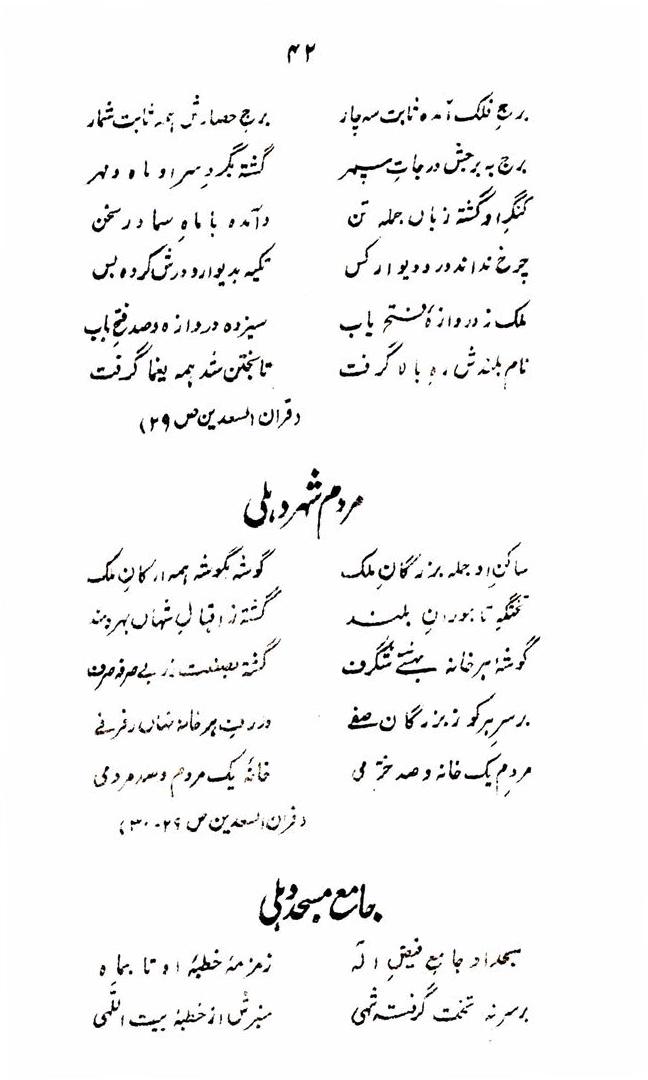 ۴۲
برج فلک آمده ثابت سه چار برج حصارش همه ثابت شمار
برج به برجش درجاتِ سپهر گشته بگردِ سرِ او ماه و مهر
کنگرِ او گشته زباں جمله تن در آمده با ماهِ سما در سخن
چرخ نداند در و دیوار کس تکیه بدیوار و درش کرده بس
ملک ز دروازهٔ فتح یاب سیزده دروازه و صد فتحِ باب
نامِ بلندش رهِ بالا گرفت تا بختن شد همه یغما گرفت
(قران السعدین ص ۲۹)
مردم شهر دہلی
ساکنِ او جمله بزرگانِ ملک گوشه بگوشه همه ارکانِ ملک
تختگه تاجورانِ بلند گشته ز اقبالِ شهاں بهره مند
گوشهٔ هر خانه بهشتے شگرف گشته بصنعت زرِ بے صرفه صرف
بر سرِ هر کو ز بزرگان صفے در رتِ هر خانه نهاں رفرفے
مردمِ یک خانه و صد خرّمی خانهٔ یک مردم و صد مردمی
(قران السعدین ص ۲۹-۳۰)
جامع مسجد دہلی
مسجد او جامعِ فیضِ الٰه زمزمهٔ خطبهٔ او تا بماه
بر سرِ نه تخت گرفته شهی منبرش از خطبهٔ بیت اللّهی